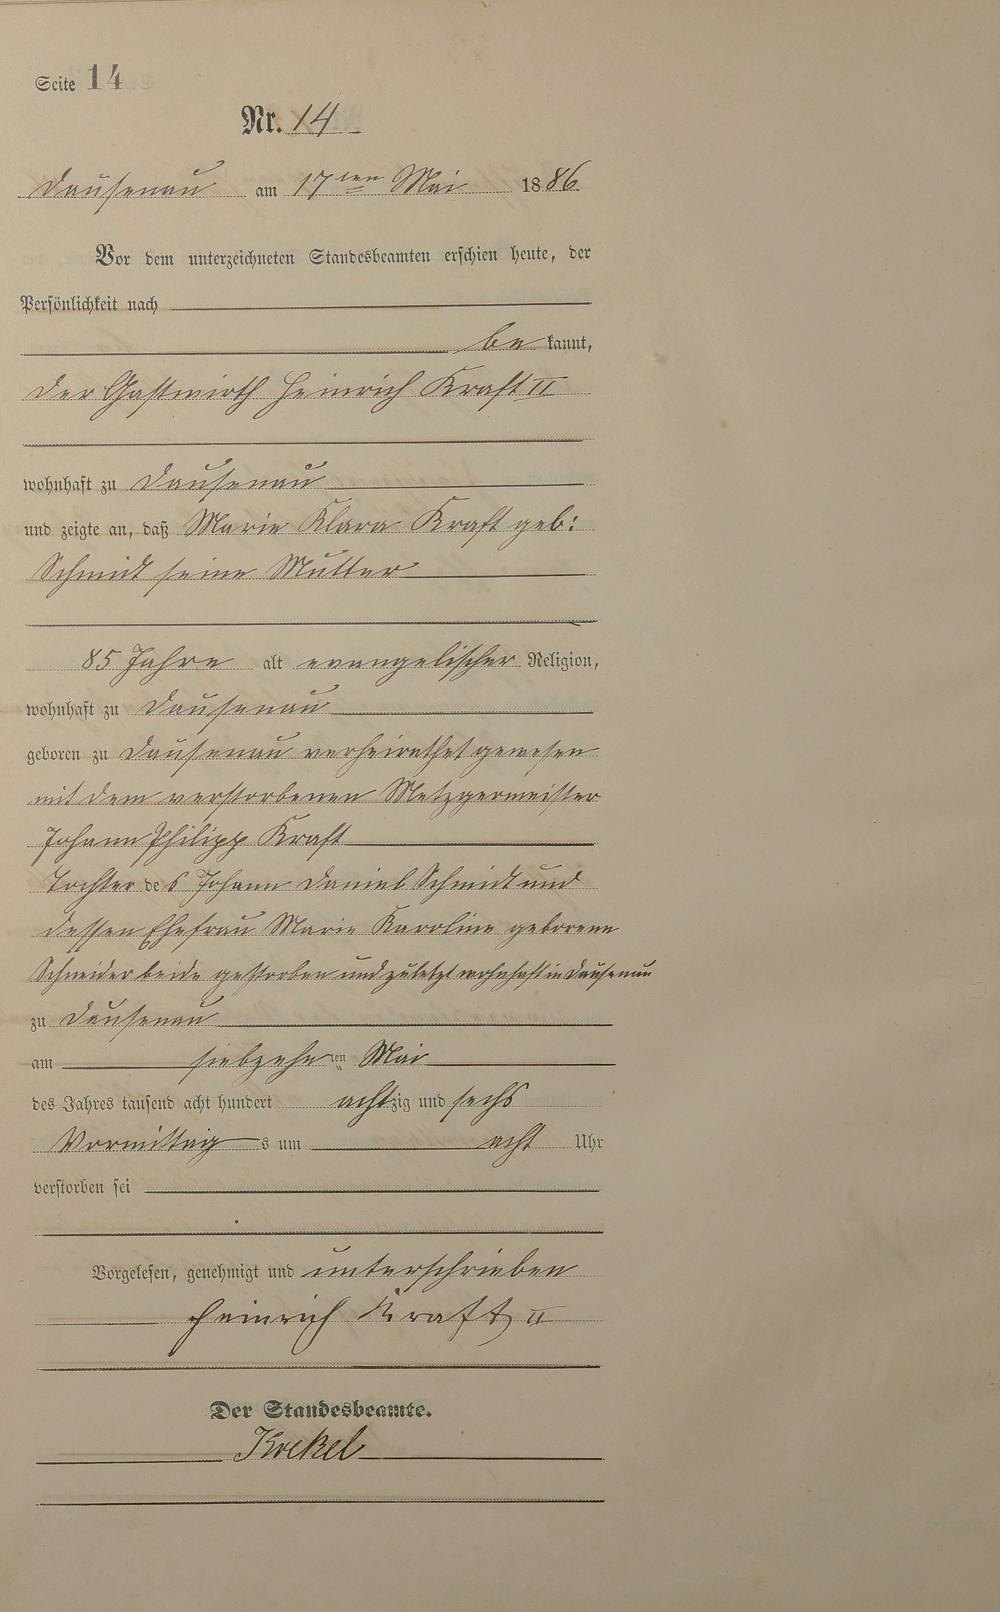 Seite 14
Nr. 14
Dausenau am 17ten Mai 1886.
Vor dem unterzeichneten Standesbeamten erschien heute, der
Persönlichkeit nach
be kannt,
der Gastwirth Heinrich Kraft II
wohnhaft zu Dausenau
und zeigte an, daß Marie Klara Kraft geb:
Schmidt seine Mutter
85 Jahre alt evangelischer Religion,
wohnhaft zu Dausenau
geboren zu Dausenau verheirathet gewesen
mit dem verstorbenen Metzgermeister
Johann Philipp Kraft
Tochter des Johann Daniel Schmidt und
dessen Ehefrau Marie Karoline geborene
Schneider beide gestorben und zuletzt wohnhaft in Dausenau
zu Dausenau
am siebzehnten Mai
des Jahres tausend acht hundert achtzig und sechs
Vormittags um acht Uhr
verstorben sei
Vorgelesen, genehmigt und unterschrieben
Heinrich Kraft II
Der Standesbeamte.